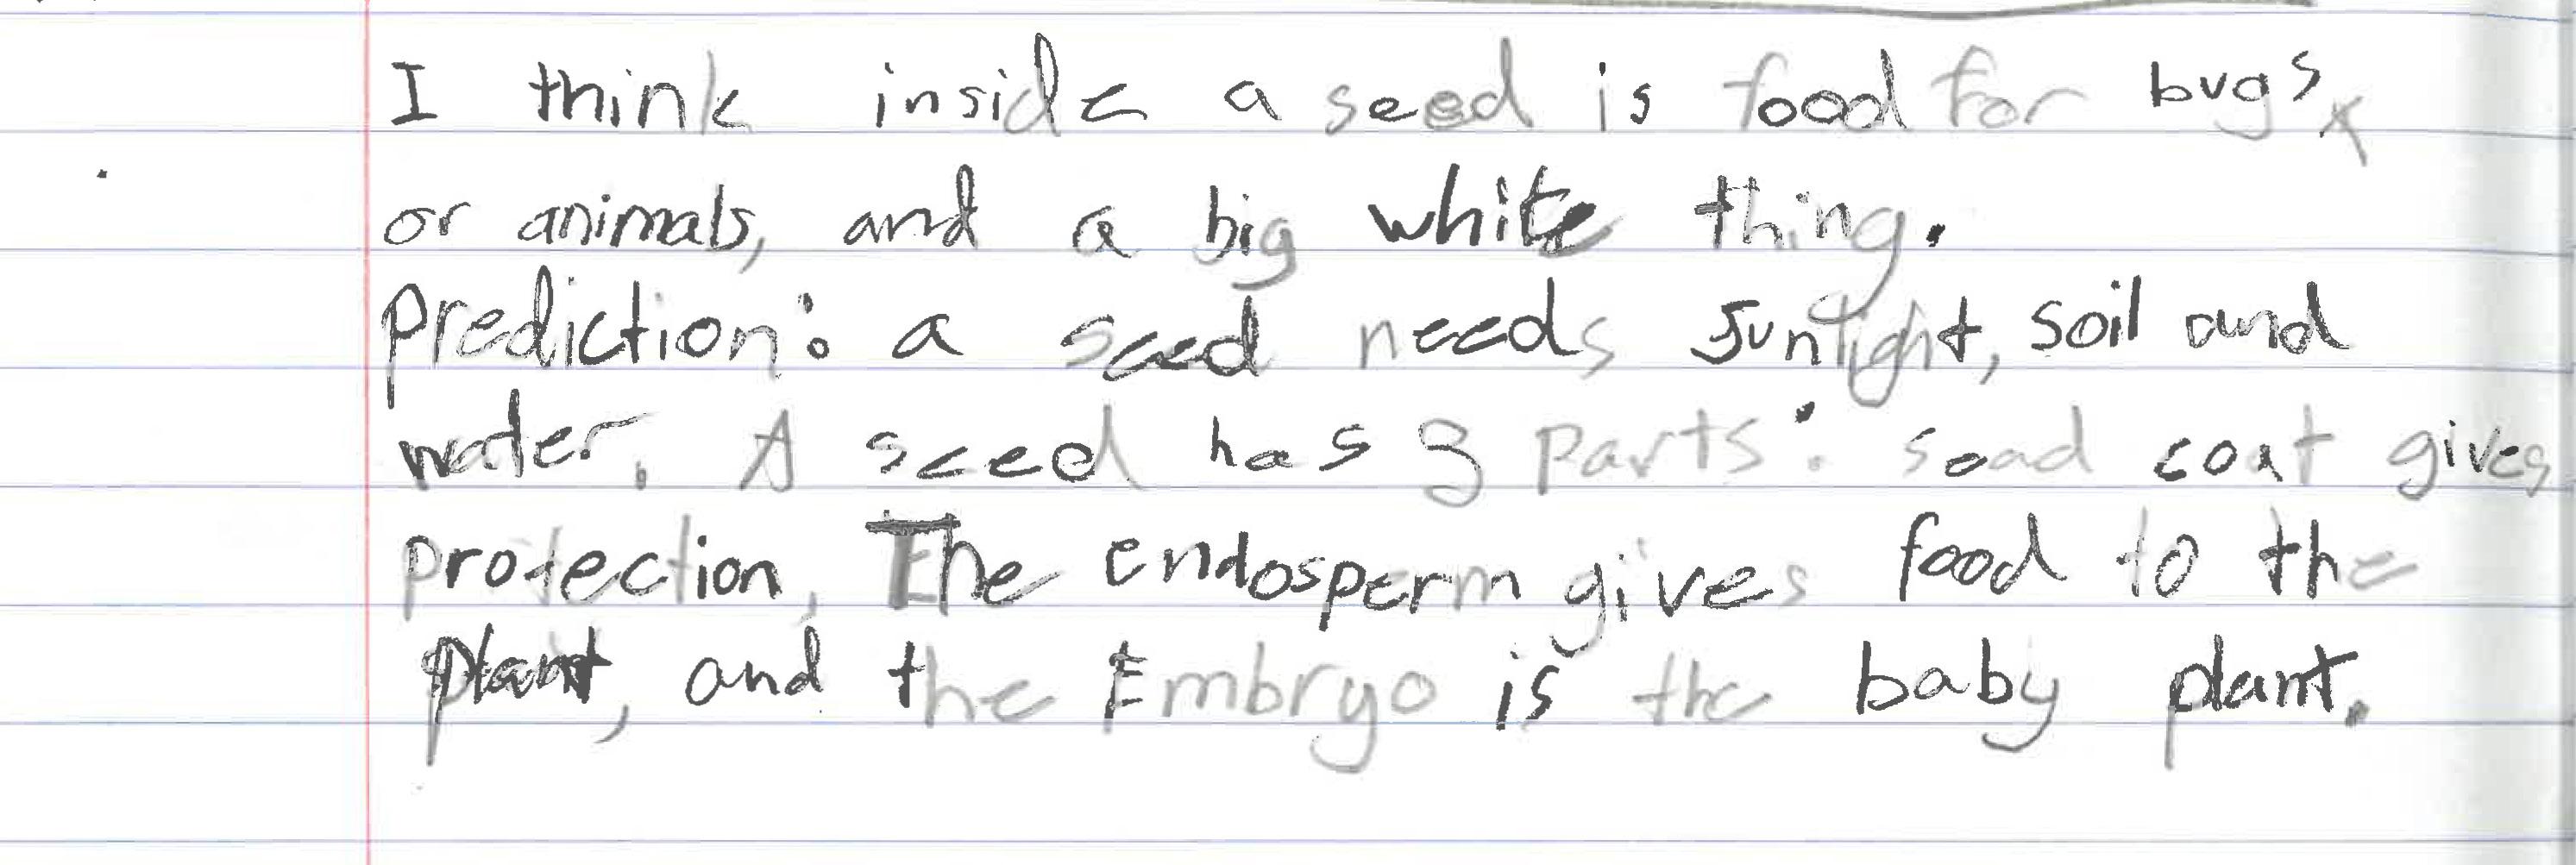 I think inside a seed is food for bugs
or animals, and a big white thing.
prediction: a seed needs sunlight, soil and
water. A seed has 3 parts: soad coat gives
protection, The endosperm gives food to the
plant, and the Embryo is the baby plant.